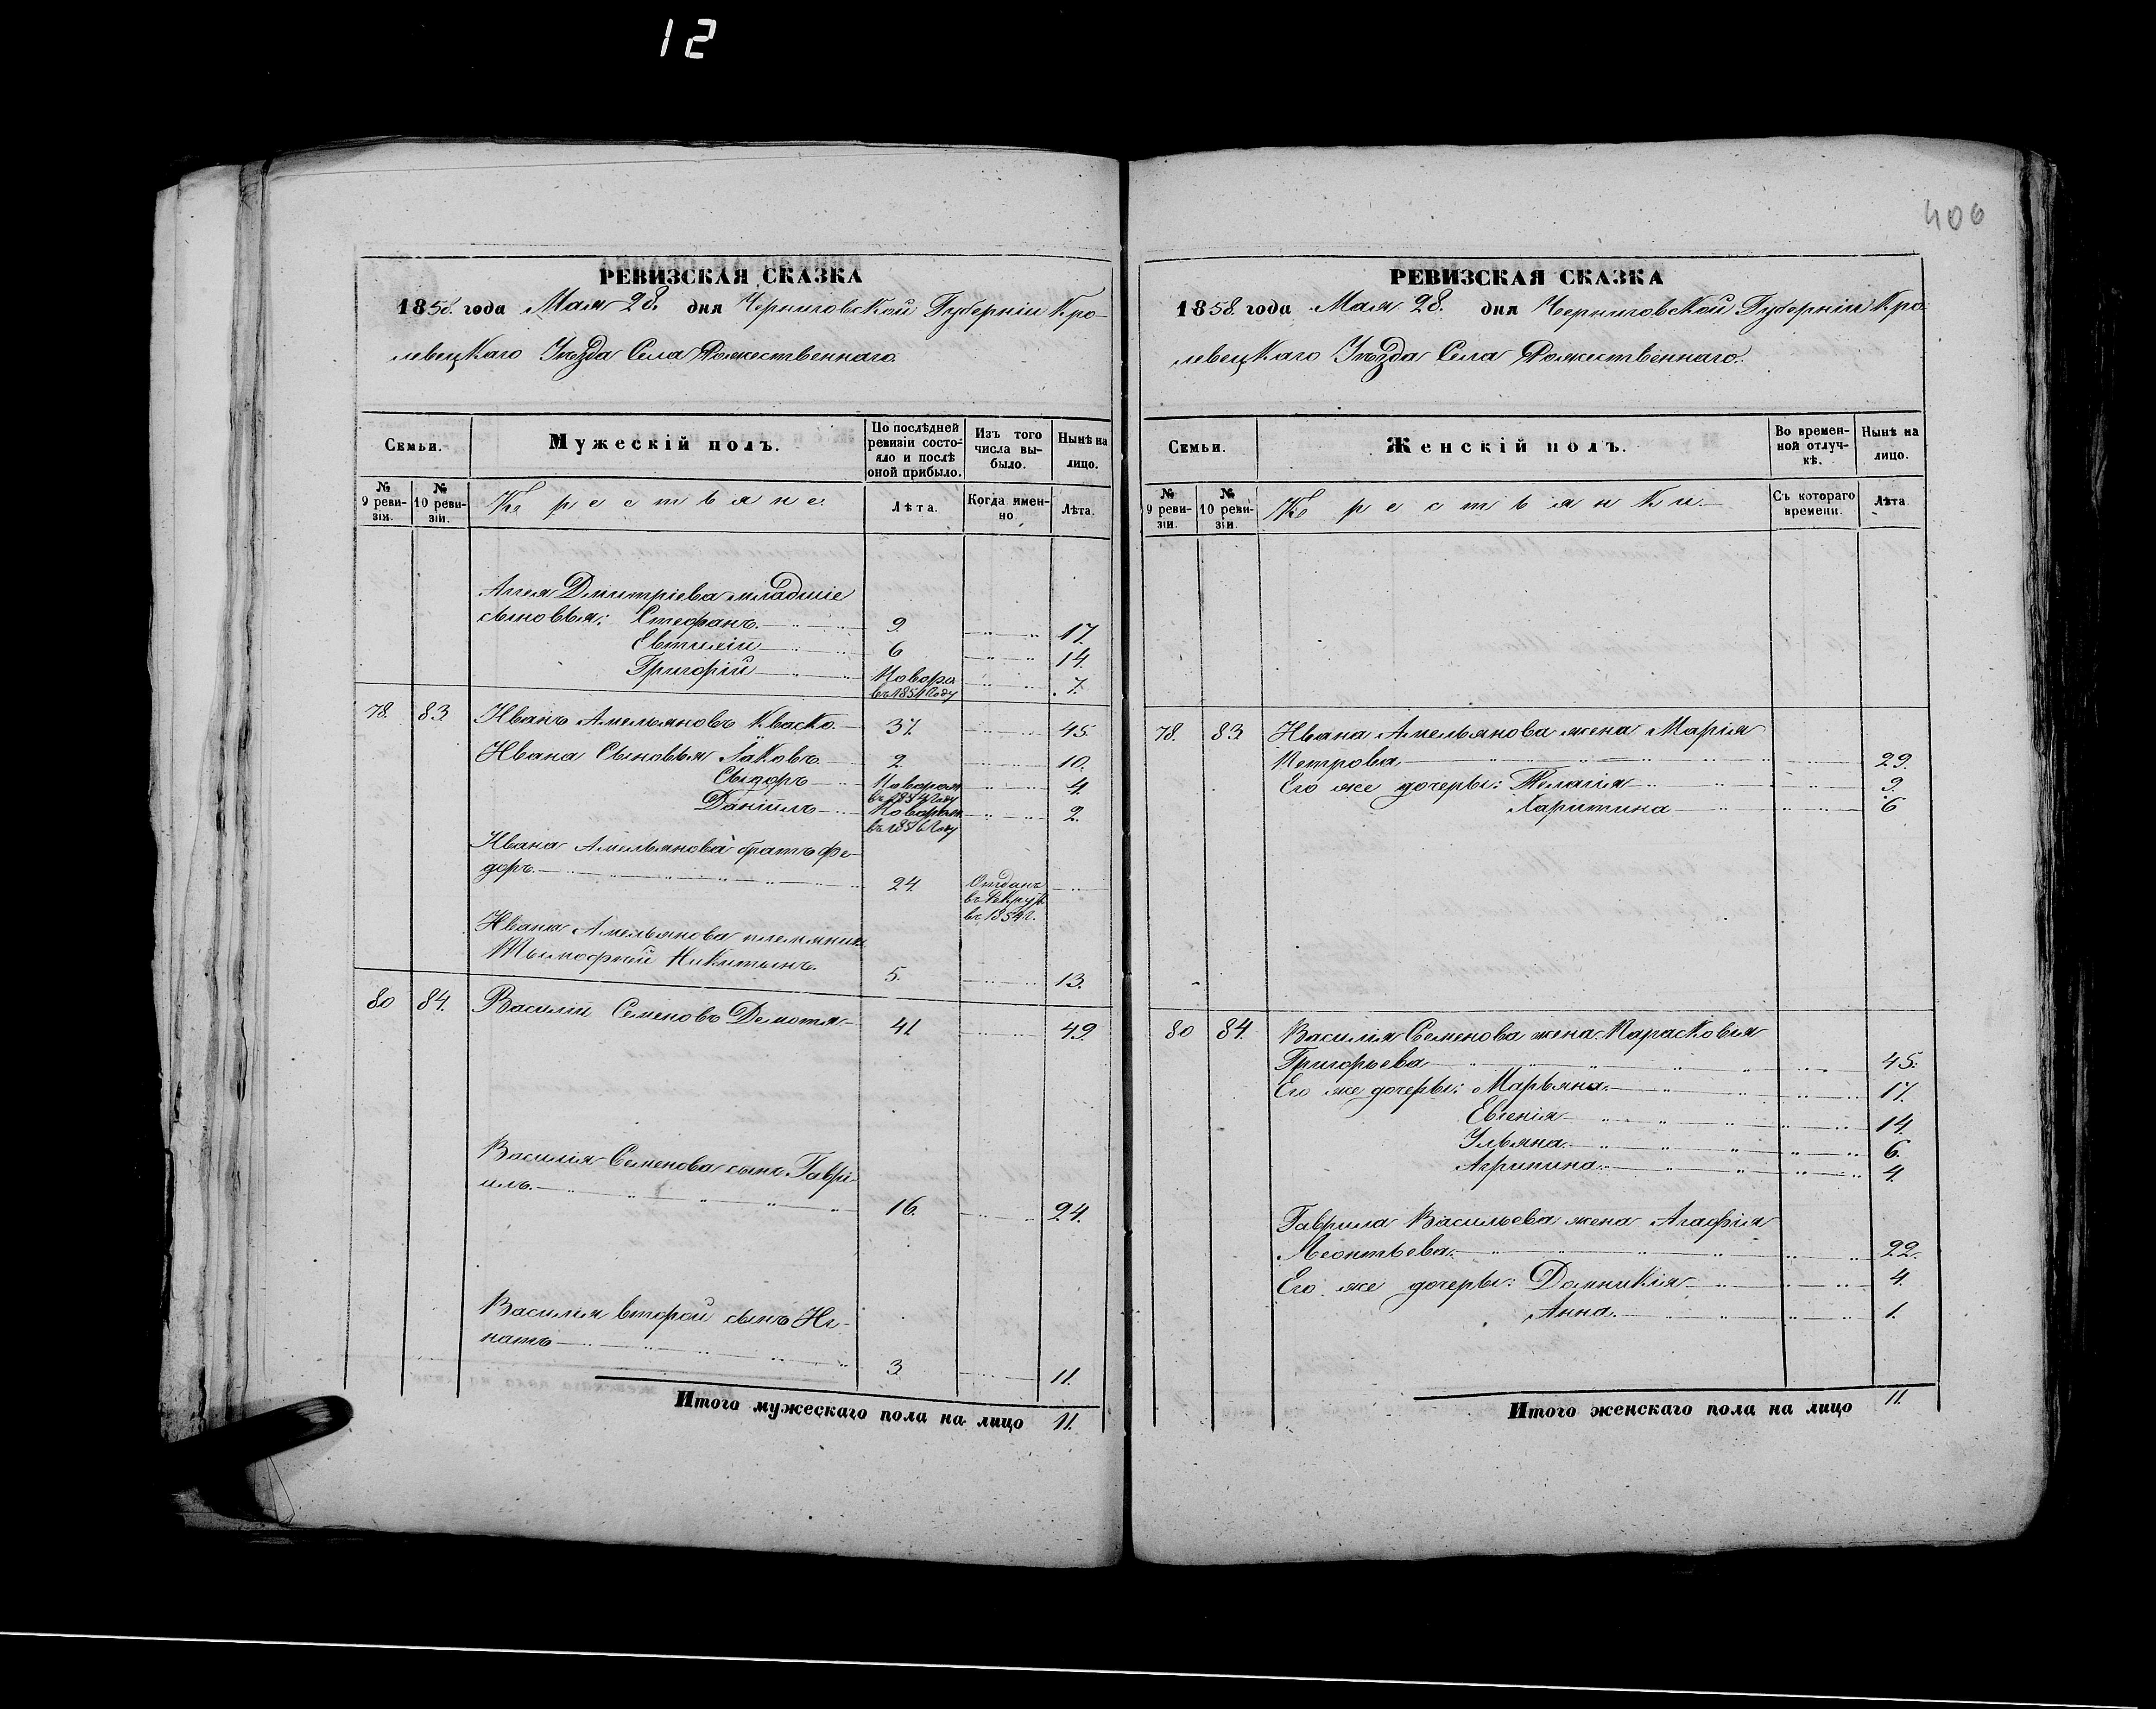 12
406
РЕВИЗСКАЯ СКАЗКА
1858. года Мая 28. дня Черниговской Губерніи Кро-
левецкаго Уѣзда Села Рожественнаго.
Семьи.
Мужескій полъ.
По послѣдней
ревизіи состо-
яло и послѣ
оной прибыло.
Изъ того
числа вы-
было.
Нынѣ на
лицо.
№
9 реви-
зіи.
№
10 реви-
зіи.
Крестьяне
Лѣта.
Когда имен-
но.
Лѣта.
Дмитріева младшіе
сыновья: Стефанъ. 9. 17.
Евтихій 6 14.
Григорій Новоро 7.
въ 1851 году
78. 83. Иванъ Амельяновъ Кваско. 37. 45.
Ивана Сыновья Яковъ. 2. 10.
Сыдоръ Новорож 4.
въ 1854 году
Даніилъ Новорож 2.
въ 1856 году
Ивана Амельянова братъ Фе-
доръ. 24. Отданъ
въ Рекрут
въ 1854 г.
Ивана Амельянова племянник
Тымофѣй Никитынъ. 5. 13.
80 84. Василій Семеновъ 41 49.
Василія Семенова сынъ Гаври
илъ. 16. 24.
Василія второй сынъ Иг-
натъ 3. 11.
Итого мужескаго пола на лицо 11.
РЕВИЗСКАЯ СКАЗКА
1858. года Мая 28. дня Черниговской Губерніи Кро-
левецкаго Уѣзда Села Рожественнаго.
Семьи.
Женскій полъ.
Во времен-
ной отлуч-
кѣ.
Нынѣ на
лицо.
№
9 реви-
зіи.
№
10 реви-
зіи.
Крестьянки
Съ котораго
времени.
Лѣта
78. 83. Ивана Амельянова жена Марія
Петрова 29.
Его же дочеры: Пелагія 9.
Харитина 6
80 84. Василія Семенова жена Парасковія
Григорьева 45.
Его же дочеры: Марьяна. 17.
Евгенія 14.
Ульяна. 6.
Агрипина. 4.
Гаврила Васильева жена Агафія
Леонтьева. 22.
Его же дочеры: Домникія 4.
Анна. 1.
Итого женскаго пола на лицо 11.